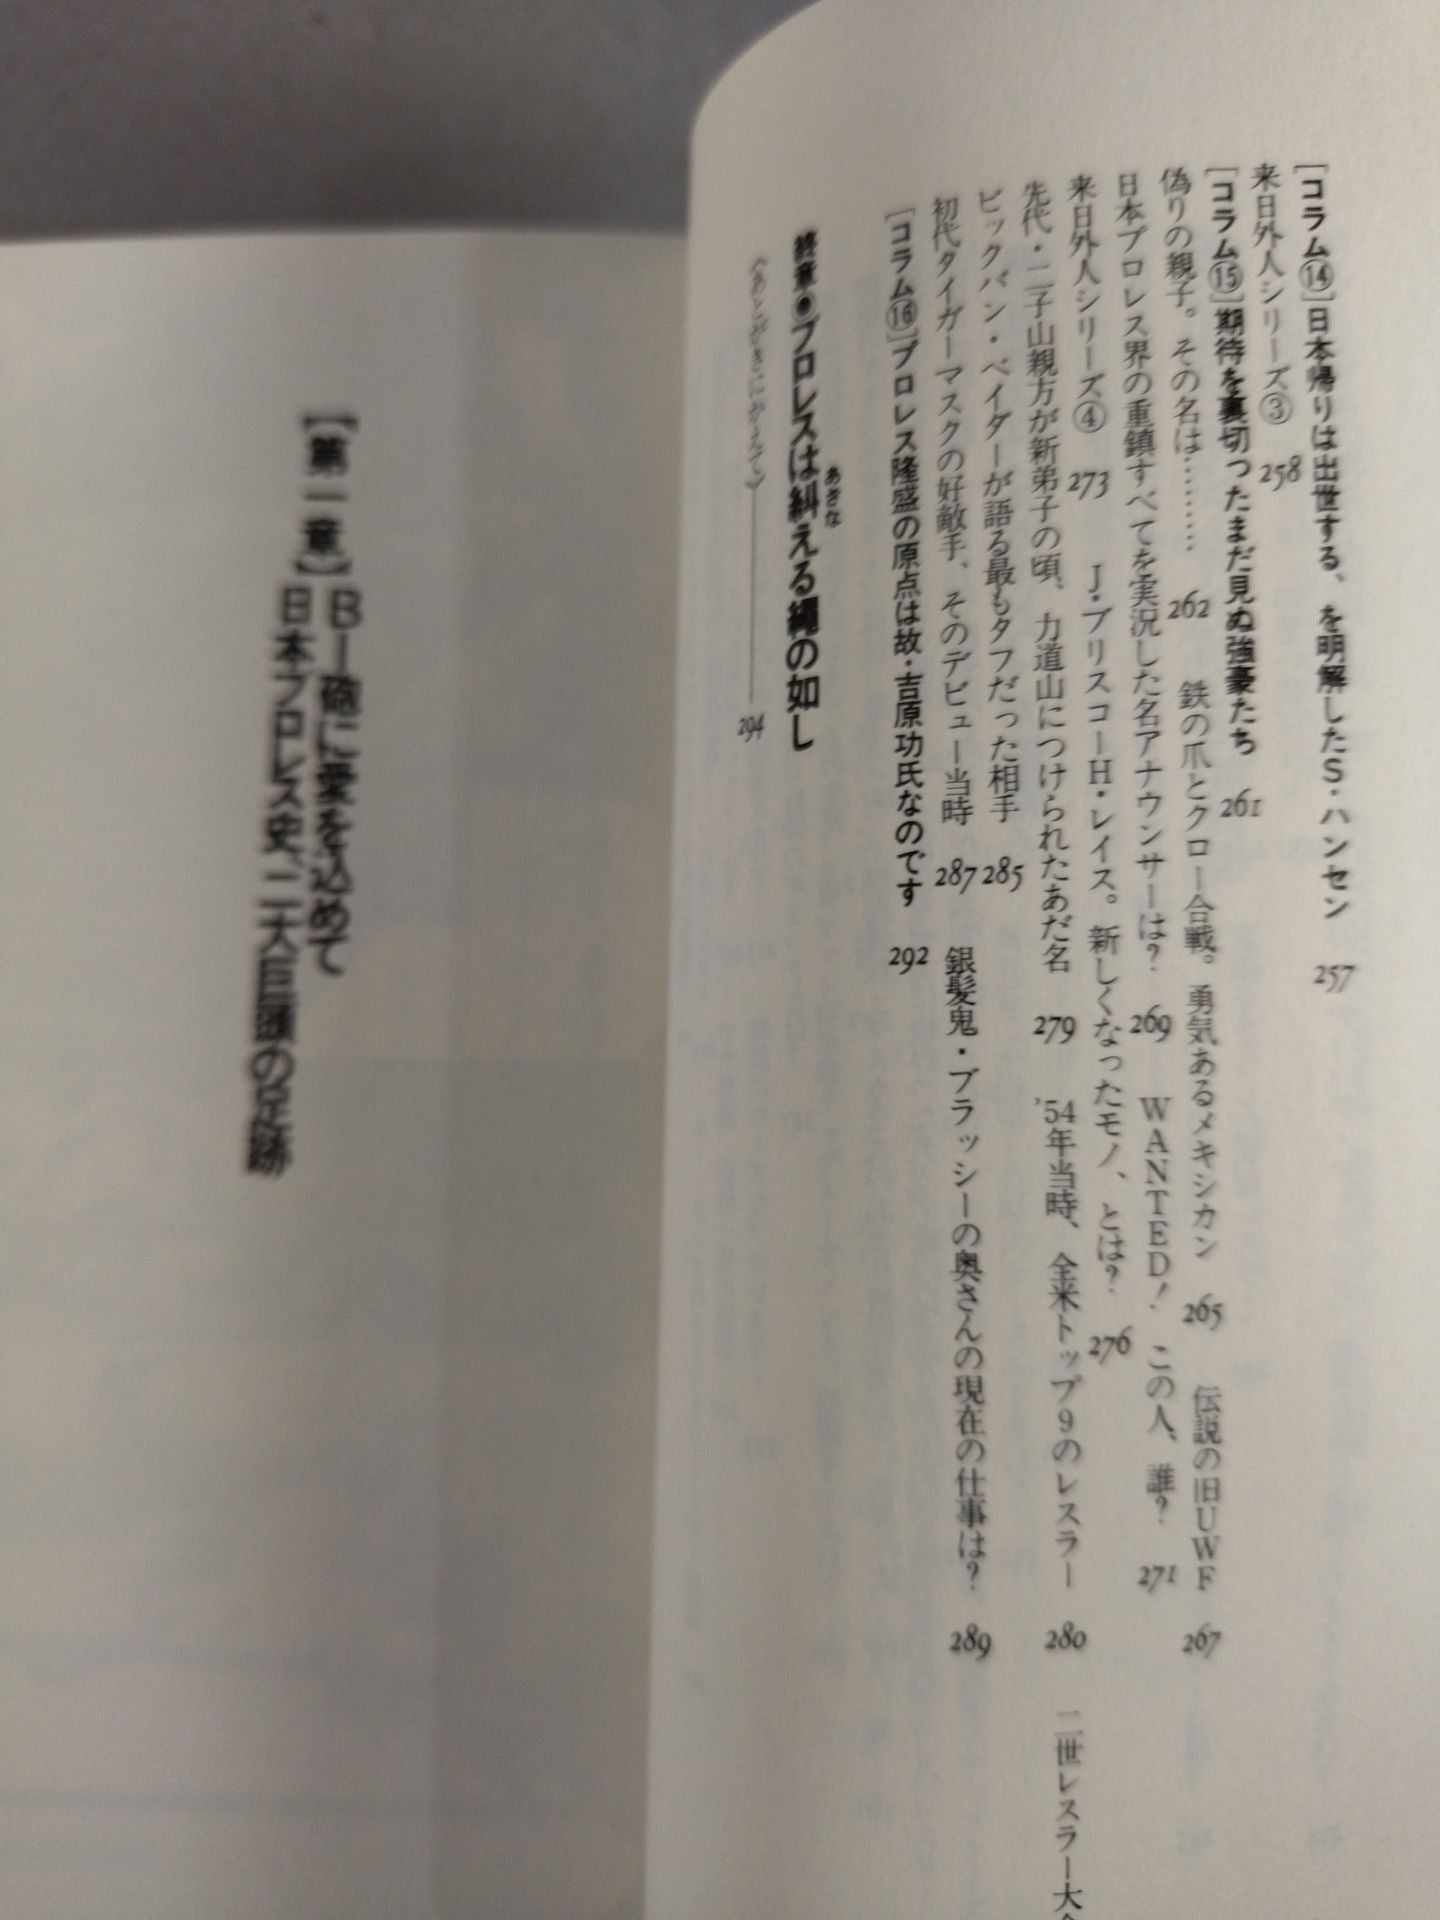 [コラム⑭]日本帰りは出世する、を明解したS・ハンセン 257
来日外人シリーズ③ 258
[コラム⑮]期待を裏切ったまだ見ぬ強豪たち 261
偽りの親子。その名は……… 262 鉄の爪とクロー合戦。勇気あるメキシカン 265 伝説の旧UWF 267
日本プロレス界の重鎮すべてを実況した名アナウンサーは? 269 WANTED! この人、誰? 271
来日外人シリーズ④ 273 J・ブリスコーH・レイス。新しくなったモノ、とは? 276
先代・二子山親方が新弟子の頃、力道山につけられたあだ名 279 '54年当時、全米トップ9のレスラー 280 二世レスラー大
ビックバン・ベイダーが語る最もタフだった相手 285
初代タイガーマスクの好敵手、そのデビュー当時 287 銀髪鬼・ブラッシーの奥さんの現在の仕事は? 289
[コラム⑯]プロレス隆盛の原点は故・吉原功氏なのです 292
終章●プロレスは糾える縄の如し
あきな
〈あとがきにかえて〉 294
【第一章】B-砲に愛を込めて
日本プロレス史、二大巨頭の足跡